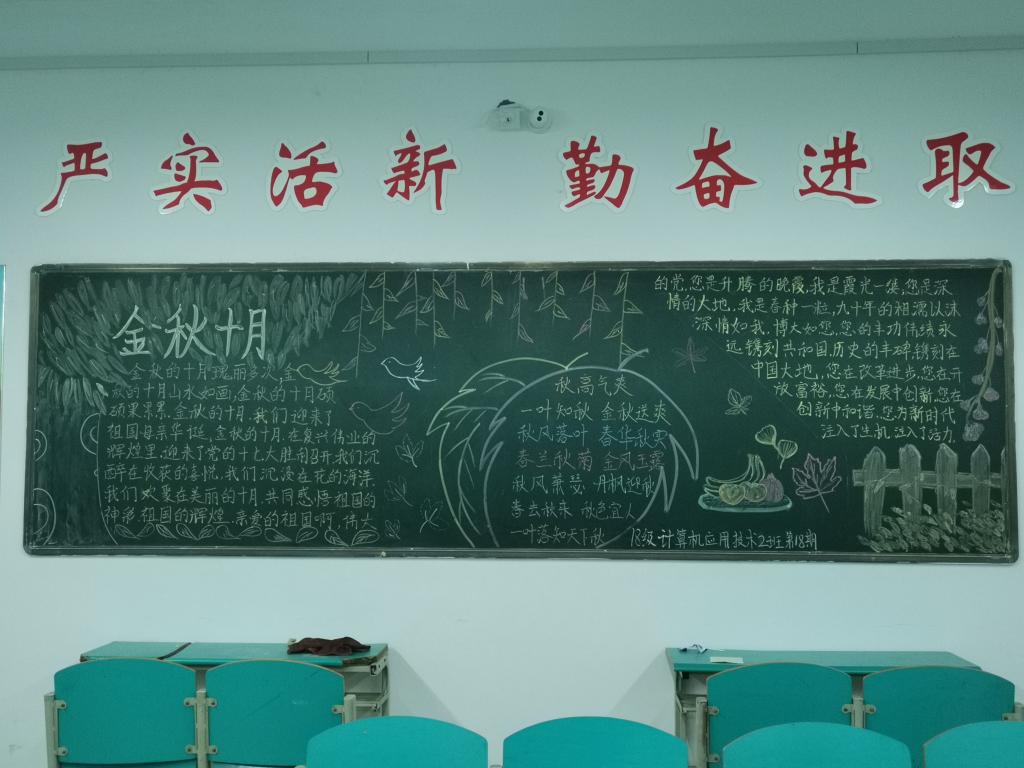 严实活新 勤奋进取
金秋十月
金秋的十月瑰丽多次,金
秋的十月山水如画,金秋的十月硕
硕果累累,金秋的十月.我们迎来了
祖国母亲华诞,金秋的十月.在复兴伟业的
辉煌里.迎来了党的十七大胜利召开.我们沉
醉在收获的喜悦.我们沉浸在花的海洋.
我们欢聚在美丽的十月.共同感悟祖国的
神圣.祖国的辉煌.亲爱的祖国啊,伟大
秋高气爽
一叶知秋 金秋送爽
秋风落叶 春华秋实
春兰秋菊 金风玉露
秋风萧瑟 丹枫迎秋
春去秋来 秋色宜人
一叶落知天下秋
的党,您是升腾的晚霞,我是霞光一缕,您是深
情的大地.我是春种一粒,九十年的相濡以沫
深情如我,博大如您,您的丰功伟绩永
远镌刻共和国历史的丰碑,镌刻在
中国大地,您在改革进步,您在开
放富裕,您在发展中创新,您在
创新中和谐.您为新时代
注入了生机.注入了活力.
18级计算机应用技术2班第18期